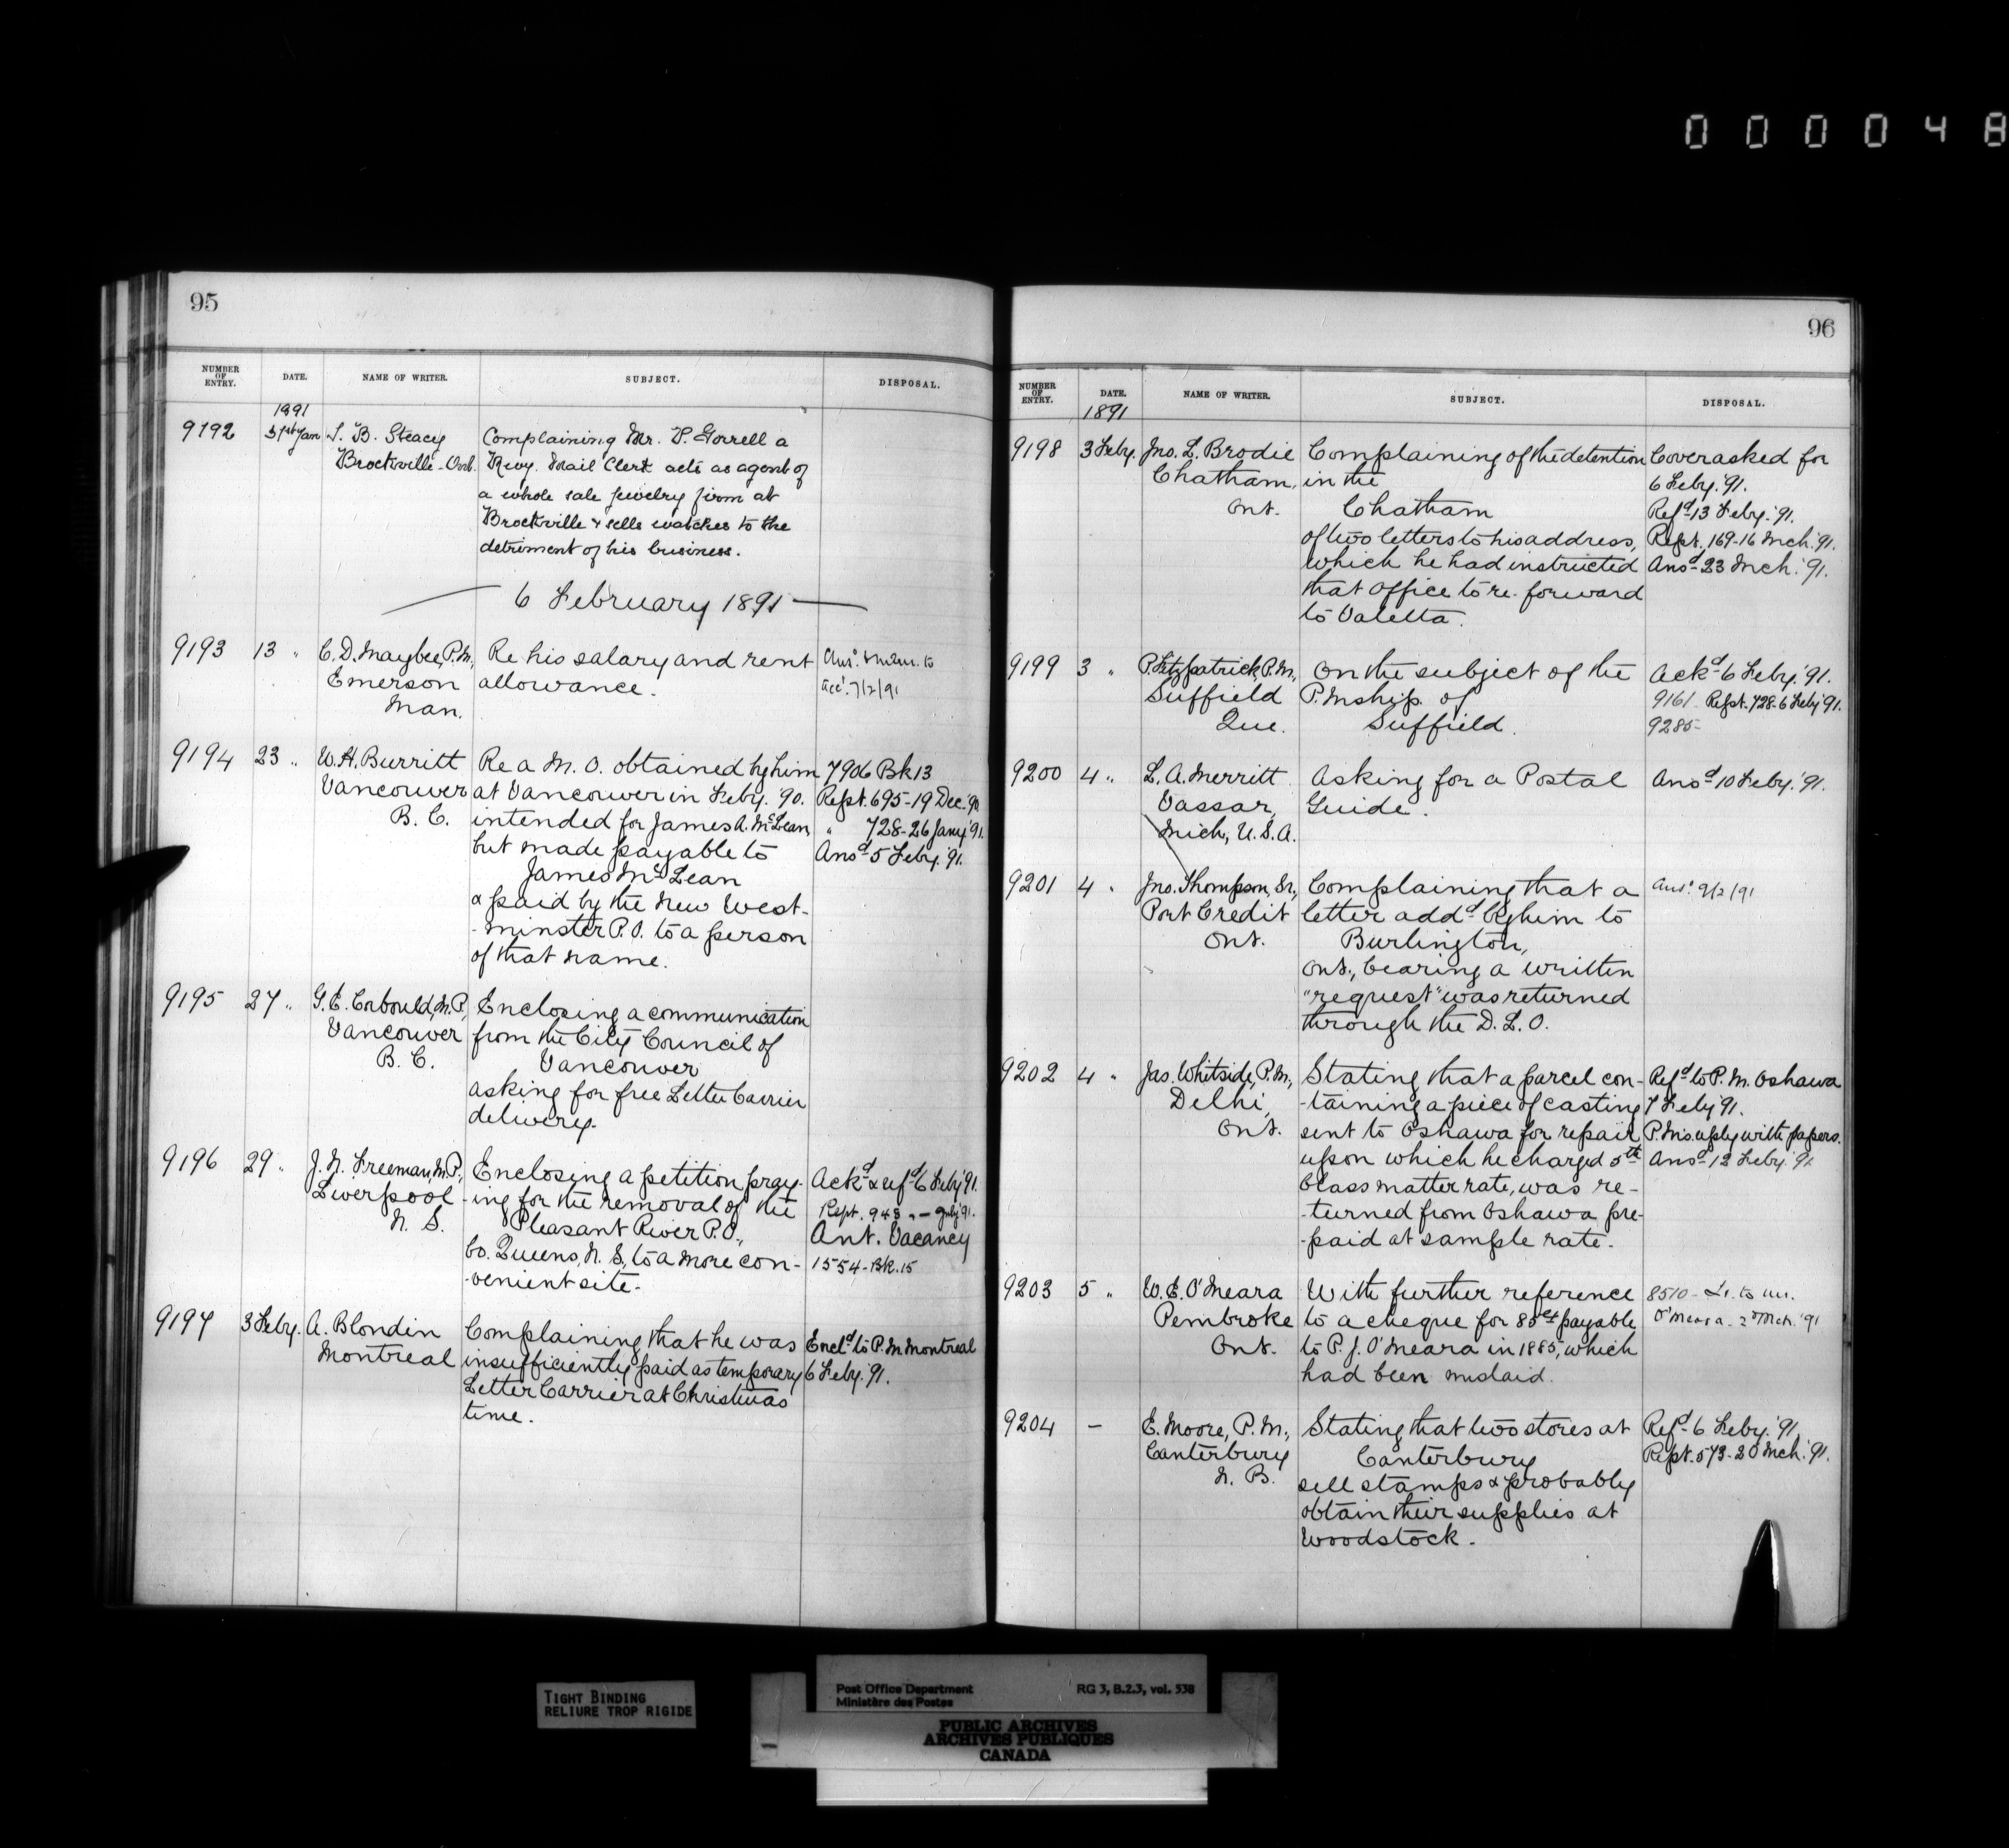 000048
95
NUMBER OF ENTRY. DATE. NAME OF WRITER. SUBJECT. DISPOSAL.
1891
9192 31st Jan B. Steacy Complaining Mr. Gorrell a
Brockville - Ont. Rwy. Mail Clerk acts as agent of
a whole sale jewelry firm at
Brockville & sells watches to the
detriment of his business.
6 February 1891
9193 13 " C. D. Maybee, P.M., Re his salary and rent
Emerson allowance. 7/2/91
Man.
9194 23 " W. H. Burritt Re a M. O. obtained by him 7906 Bk 13
Vancouver at Vancouver in Feby. '90. Rept. 695-19 Dec. '90
B. C. intended for James A. McLean, " 728-26 Jany '91.
but made payable to Ansd 5 Feby. '91.
James McLean
& paid by the New West-
-minster P.O. to a person
of that name.
9195 27 " G. E. Corbould, M.P., Enclosing a communication
Vancouver from the City Council of
B. C. Vancouver
asking for free Letter Carrier
delivery.
9196 29 " J. N. Freeman, M.P., Enclosing a petition pray- Ackd & refd 6 Feby '91.
Liverpool -ing for the removal of the Rept. 943 " — July '91.
N. S. Pleasant River P.O., Ant. Vacancy
Co. Queens, N. S., to a more con- 1554-Bk. 15
-venient site.
9197 3 Feby. A. Blondin Complaining that he was Encd to P.M. Montreal
Montreal insufficiently paid as temporary 6 Feby. '91.
Letter Carrier at Christmas
time.
96
NUMBER OF ENTRY. DATE. NAME OF WRITER. SUBJECT. DISPOSAL.
1891
9198 3 Feby. Jno. L. Brodie Complaining of the detention Cover asked for
Chatham, in the 6 Feby. '91.
Ont. Chatham Refd 13 Feby. '91.
of two letters to his address, Rept. 169-16 Mch. '91.
which he had instructed Ansd 23 Mch. '91.
that Office to re-forward
to Valetta.
9199 3 " P. Fitzpatrick, P.M., On the subject of the Ackd 6 Feby. '91.
Suffield P.Mship. of 9161 - Rept. 728-6 Feby '91.
Que. Suffield. 9285-
9200 4 " L. A. Merritt Asking for a Postal Ansd 10 Feby. '91.
Vassar, Guide.
Mich, U.S.A.
9201 4 " Jno. Thompson, Sr., Complaining that a Ansd 9/2/91
Port Credit letter addd by him to
Ont. Burlington,
Ont., bearing a written
"request" was returned
through the D. L. O.
9202 4 " Jas. Whitside, P.M., Stating that a parcel con- Refd to P. M. Oshawa
Delhi, -taining a piece of casting 7 Feby '91.
Ont. sent to Oshawa for repair P.M.s reply with papers.
upon which he charged 5th Ansd 12 Feby. '91
Class matter rate, was re-
-turned from Oshawa pre-
-paid at sample rate.
9203 5 " W. E. O'Meara With further reference 8510 - Lr. to Mr.
Pembroke to a cheque for 85cts payable O'Meara - 2 Mch. '91
Ont. to P. J. O'Meara in 1885, which
had been mislaid.
9204 — E. Moore, P. M., Stating that two stores at Refd 6 Feby. '91,
Canterbury Canterbury Rept. 573-20 Mch. '91.
N. B. sell stamps & probably
obtain their supplies at
Woodstock.
TIGHT BINDING
RELIURE TROP RIGIDE
Post Office Department RG 3, B.2.3, vol. 538
Ministère des Postes
PUBLIC ARCHIVES
ARCHIVES PUBLIQUES
CANADA